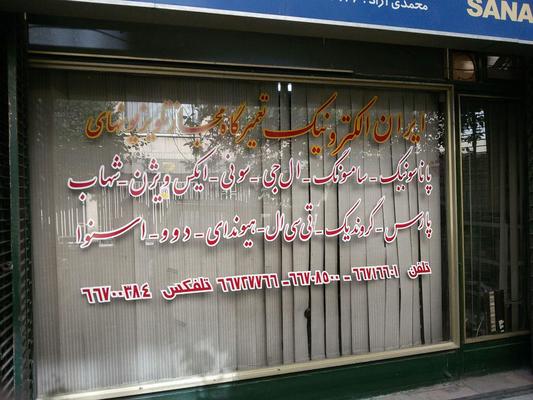 محمدی آزاد :
SANA
ایران الکترونیک تعمیرگاه مجاز تلویزیونهای
پاناسونیک - سامسونگ - ال جی - سونی - ایکس ویژن - شهاب
پارس - گروندیک - تی سی ال - هیوندای - دوو - اسنوا
تلفن ۶۶۷۱۶۶۰۱ - ۶۶۷۰۸۵۰۰ - ۶۶۷۲۷۷۶۶ تلفکس ۶۶۷۰۰۳۸۴